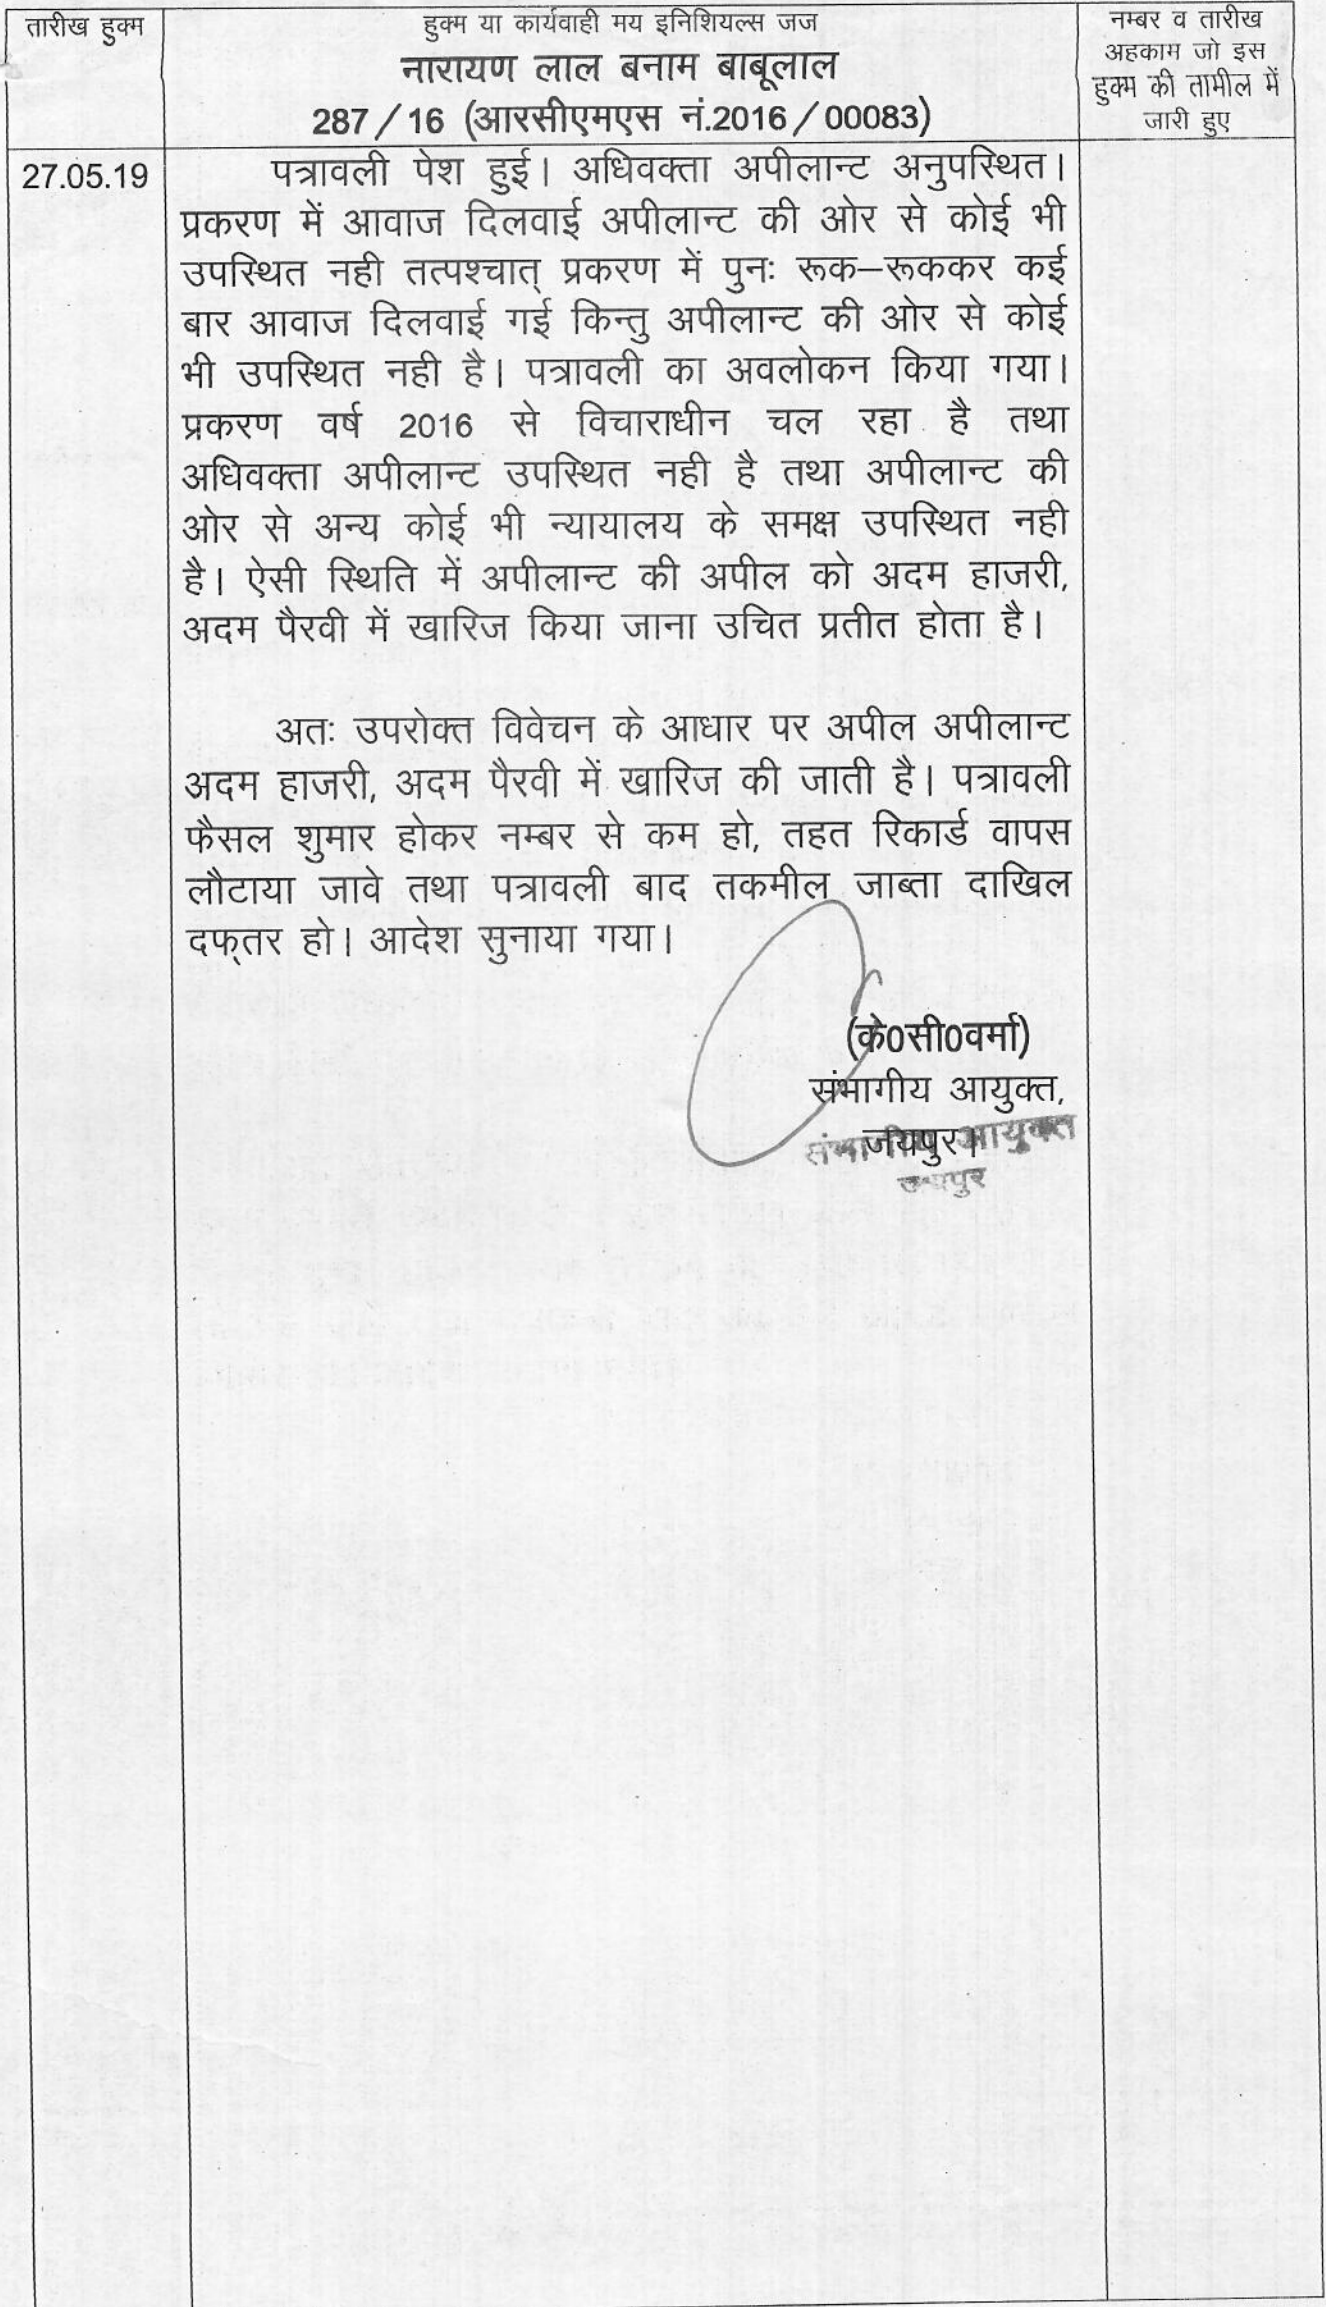 तारीख हुक्म
हुक्म या कार्यवाही मय इनिशियल्स जज
नारायण लाल बनाम बाबूलाल
287/16 (आरसीएमएस नं.2016/00083)
नम्बर व तारीख
अहकाम जो इस
हुक्म की तामील में
जारी हुए
27.05.19
पत्रावली पेश हुई। अधिवक्ता अपीलान्ट अनुपस्थित।
प्रकरण में आवाज दिलवाई अपीलान्ट की ओर से कोई भी
उपस्थित नही तत्पश्चात् प्रकरण में पुनः रूक–रूककर कई
बार आवाज दिलवाई गई किन्तु अपीलान्ट की ओर से कोई
भी उपस्थित नही है। पत्रावली का अवलोकन किया गया।
प्रकरण वर्ष 2016 से विचाराधीन चल रहा है तथा
अधिवक्ता अपीलान्ट उपस्थित नही है तथा अपीलान्ट की
ओर से अन्य कोई भी न्यायालय के समक्ष उपस्थित नही
है। ऐसी स्थिति में अपीलान्ट की अपील को अदम हाजरी,
अदम पैरवी में खारिज किया जाना उचित प्रतीत होता है।
अतः उपरोक्त विवेचन के आधार पर अपील अपीलान्ट
अदम हाजरी, अदम पैरवी में खारिज की जाती है। पत्रावली
फैसल शुमार होकर नम्बर से कम हो, तहत रिकार्ड वापस
लौटाया जावे तथा पत्रावली बाद तकमील जाब्ता दाखिल
दफ्तर हो। आदेश सुनाया गया।
(के0सी0वर्मा)
संभागीय आयुक्त,
जयपुर।
संभागीय आयुक्त
जयपुर